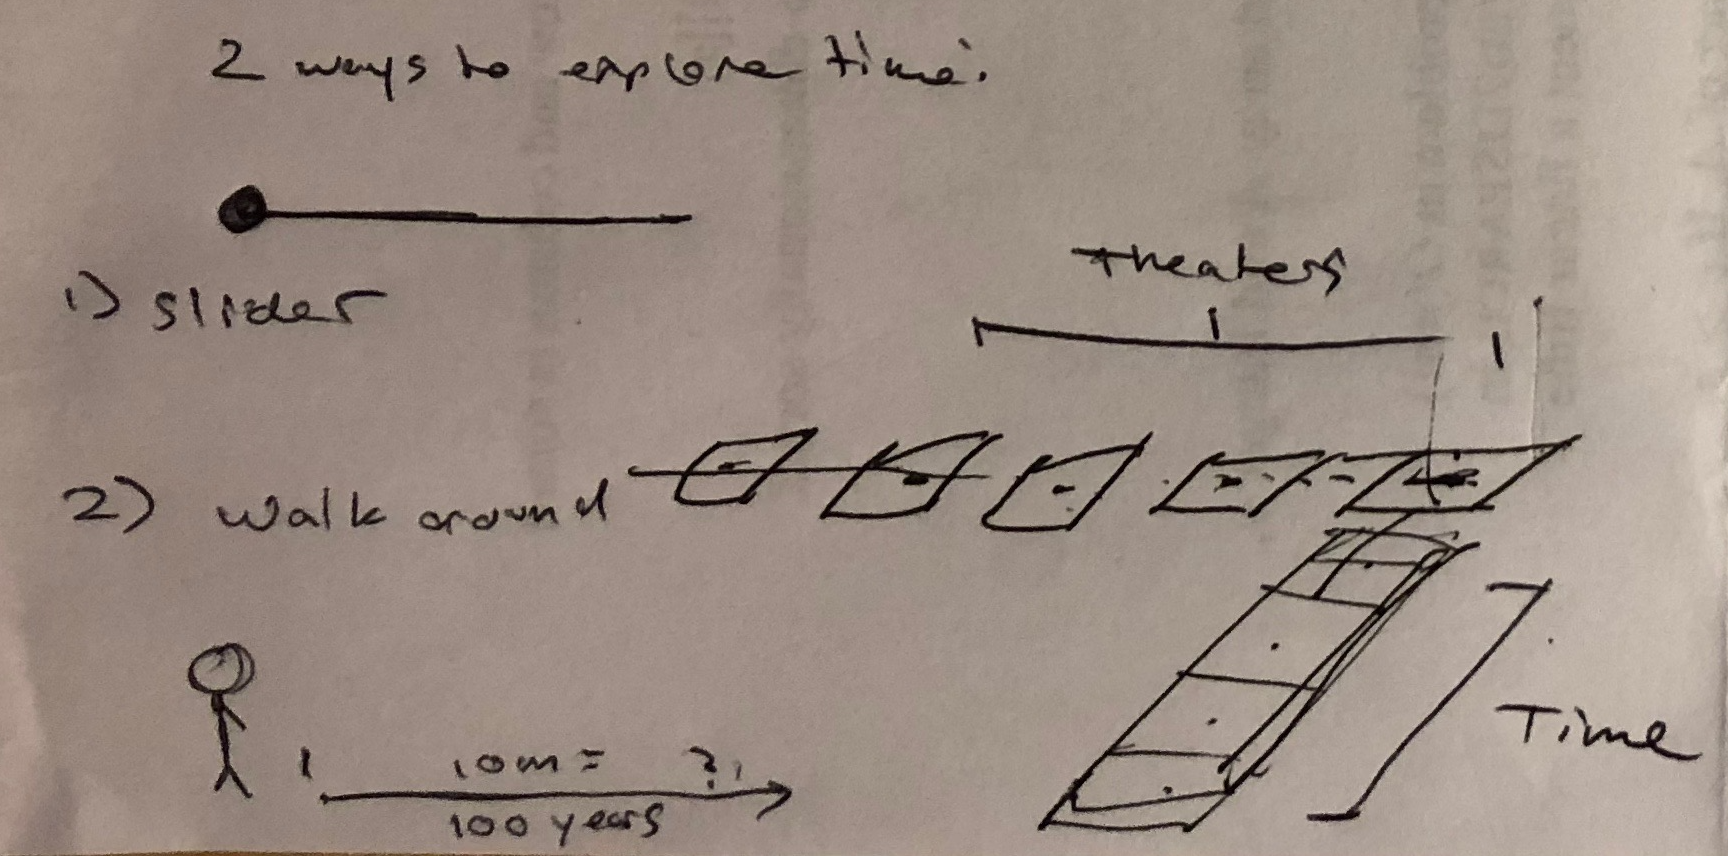 2 ways to explore time:
1) slider
Theaters
2) walk around
10m = ?
100 years
Time